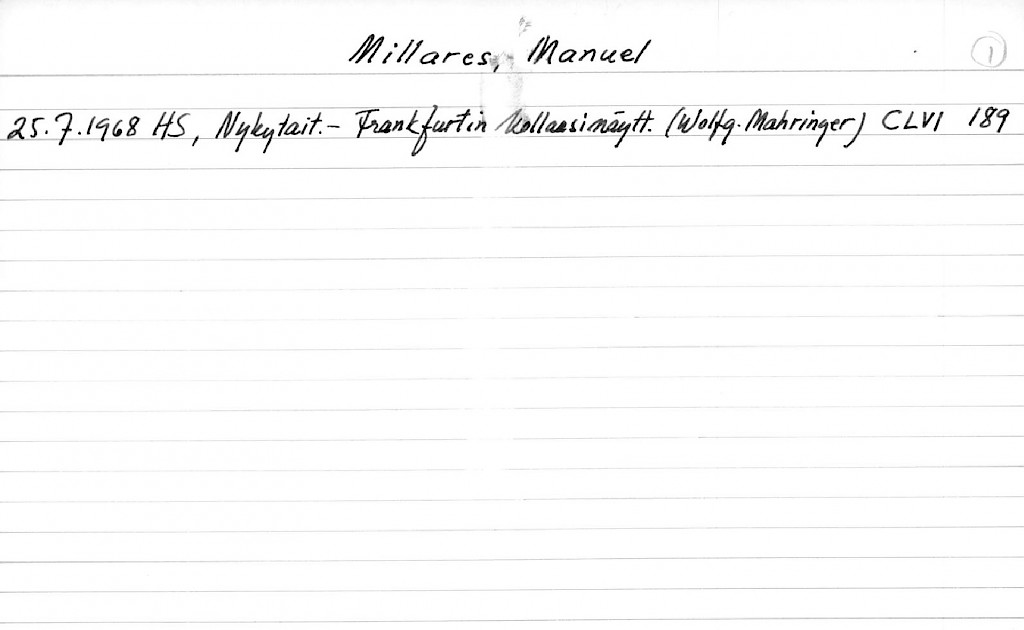 Millares, Manuel
1
25.7.1968 HS, Nykytait.- Frankfurtin kollaasinäytt. (Wolfg. Mahringer) CLVI 189